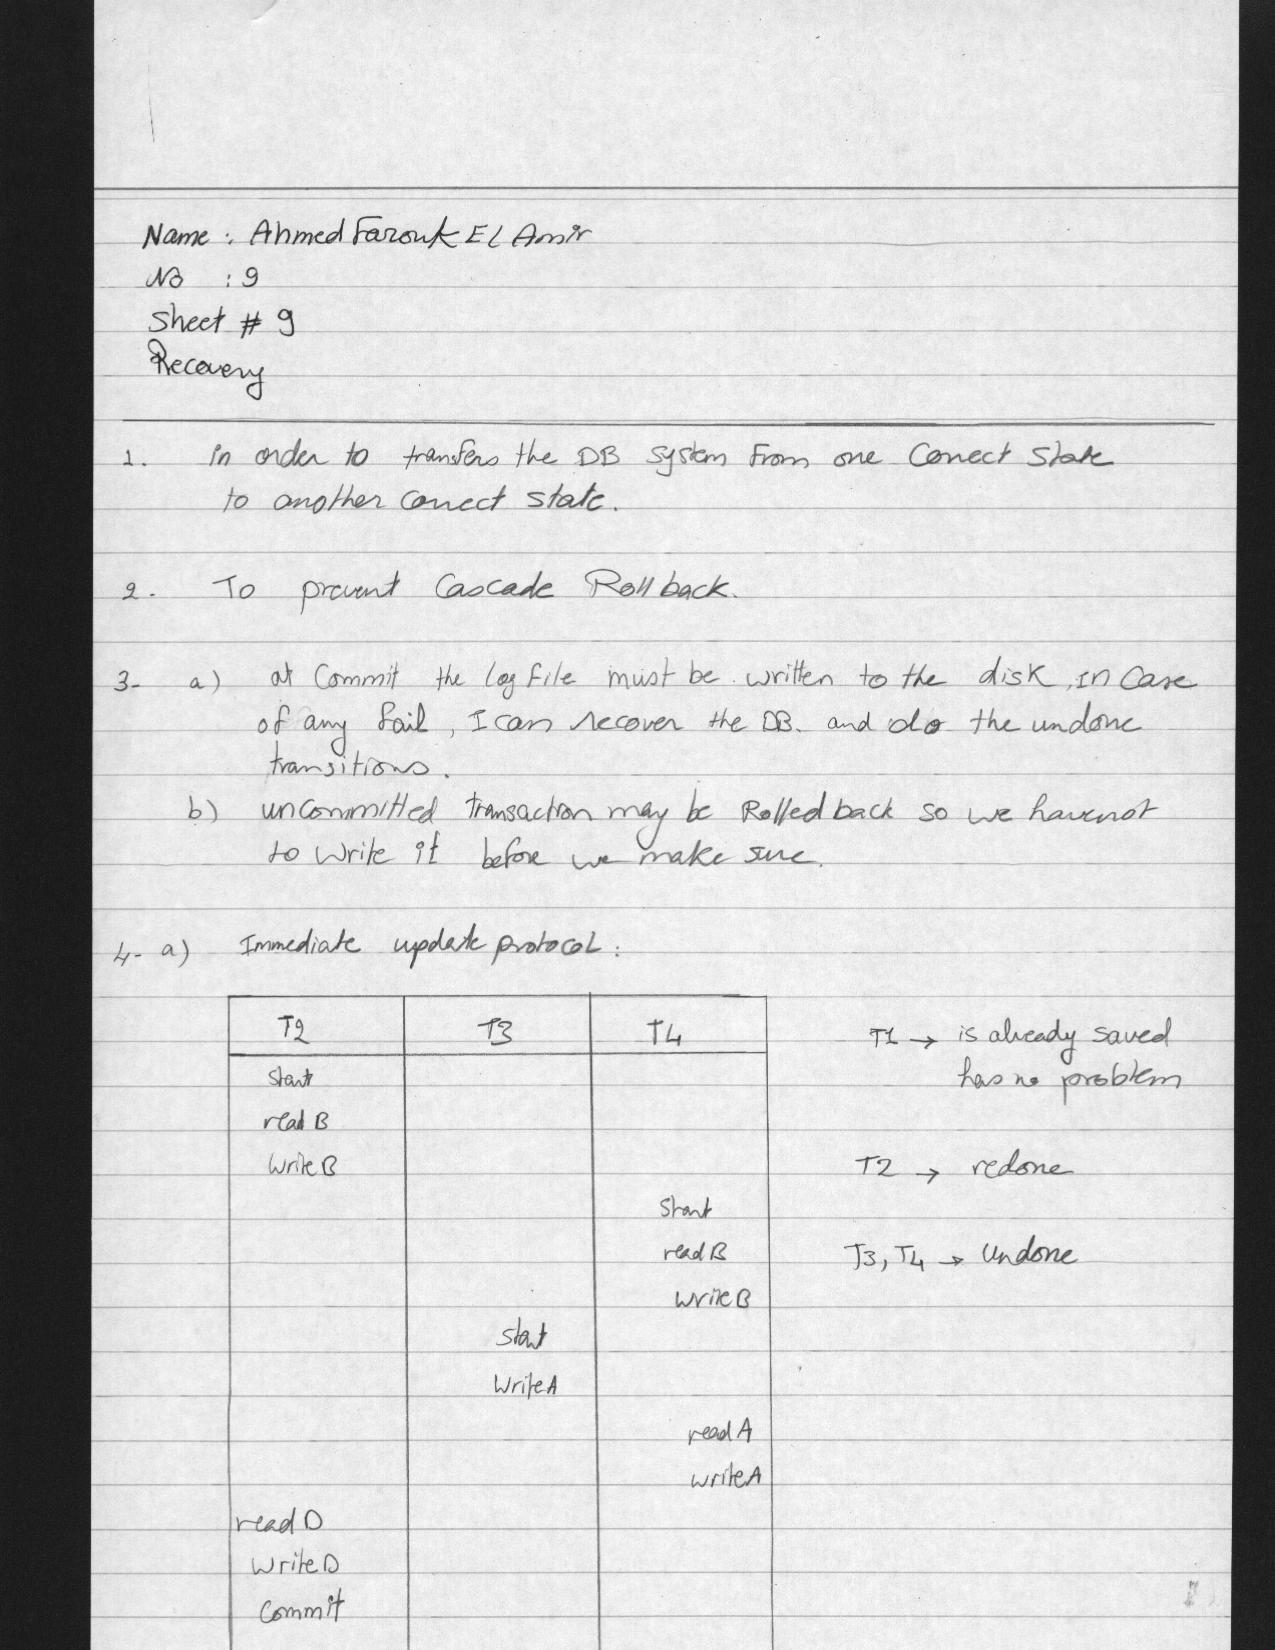 Name : Ahmed Farouk El Amir
No : 9
Sheet # 9
Recovery
1. in order to transfers the DB system from one Correct State
to another correct state.
2. To prevent Cascade Rollback.
3- a) at Commit the log file must be written to the disk, in Case
of any fail, I can recover the DB. and do the undone
transitions.
b) uncommitted transaction may be Rolled back so we have not
to write it before we make sure.
4- a) Immediate update protocol :
T2 T3 T4
T1 → is already saved
has no problem
Start
read B
Write B
T2 → redone
Start
read B
T3, T4 → Undone
write B
start
Write A
read A
write A
read D
Write D
Commit